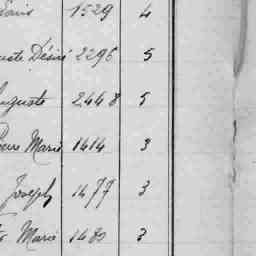 Louis 1529 4
Désiré 2296 5
Auguste 2448 5
Pierre Marie 1414 3
Joseph 1477 3
Marie 1480 3